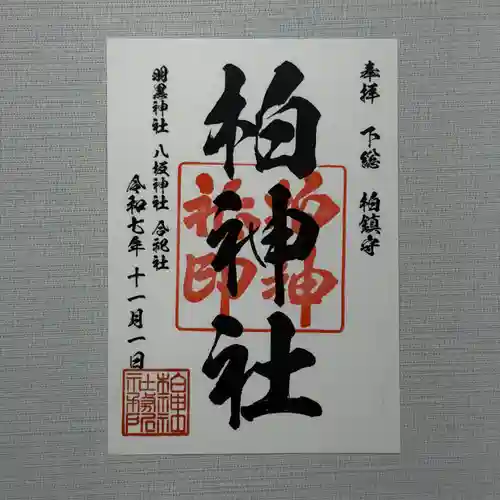 奉拝 下総 柏鎮守
柏神社
柏神
社印
羽黒神社 八坂神社 合祀社
令和七年 十一月一日
柏神社
社務所